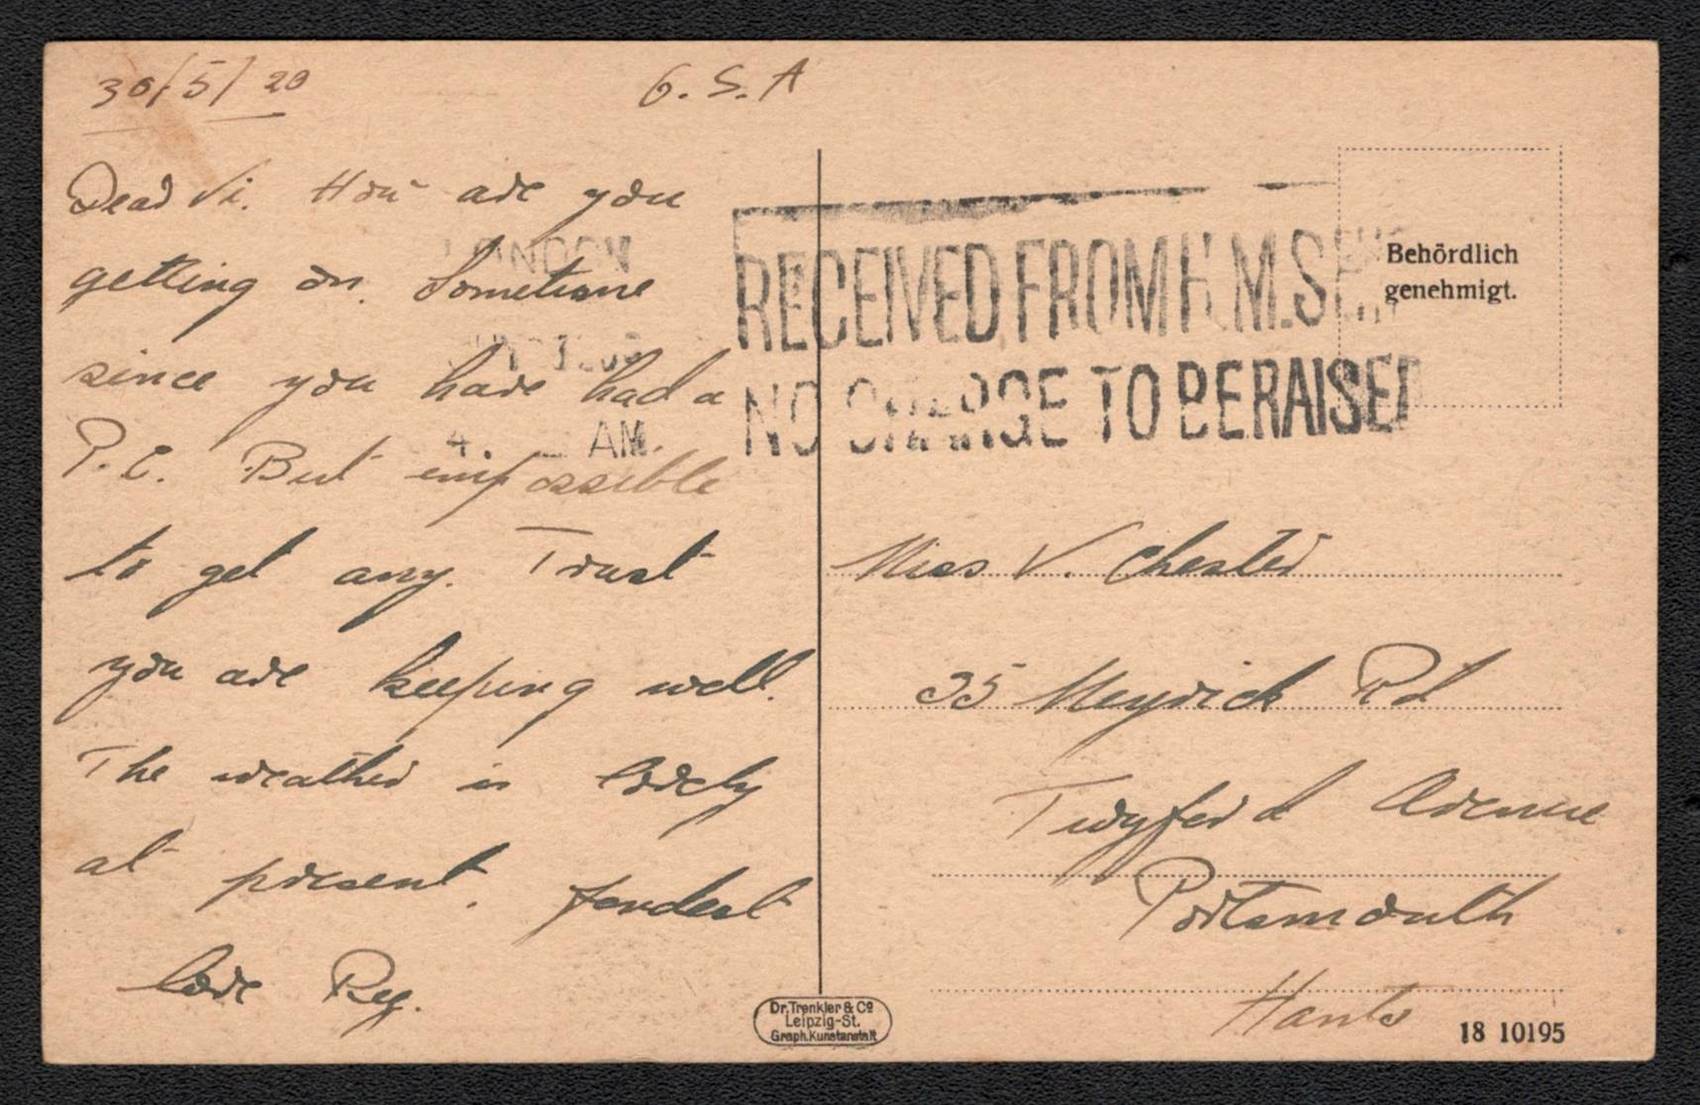 30/5/20
G.S.A
Dear Vi. How are you
getting on. Sometime
since you have had a
P.C. But impossible
to get any. Trust
you are keeping well.
The weather is lovely
at present. fondest
love Reg.
LONDON
AM.
RECEIVED FROM H.M.SHIP
NO CHARGE TO BE RAISED
Behördlich
genehmigt.
Miss V. Chester
35 Meyrick Rd
Twyford Avenue
Portsmouth
Hants
Dr. Trenkler & Co
Leipzig-St.
Graph. Kunstanstalt
18 10195